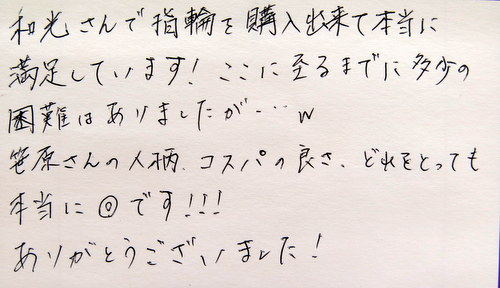 和光さんで指輪を購入出来て本当に
満足しています! ここに至るまでに多少の
困難はありましたが…w
笹原さんの人柄、コスパの良さ、どれをとっても
本当に◎です!!!
ありがとうございました!